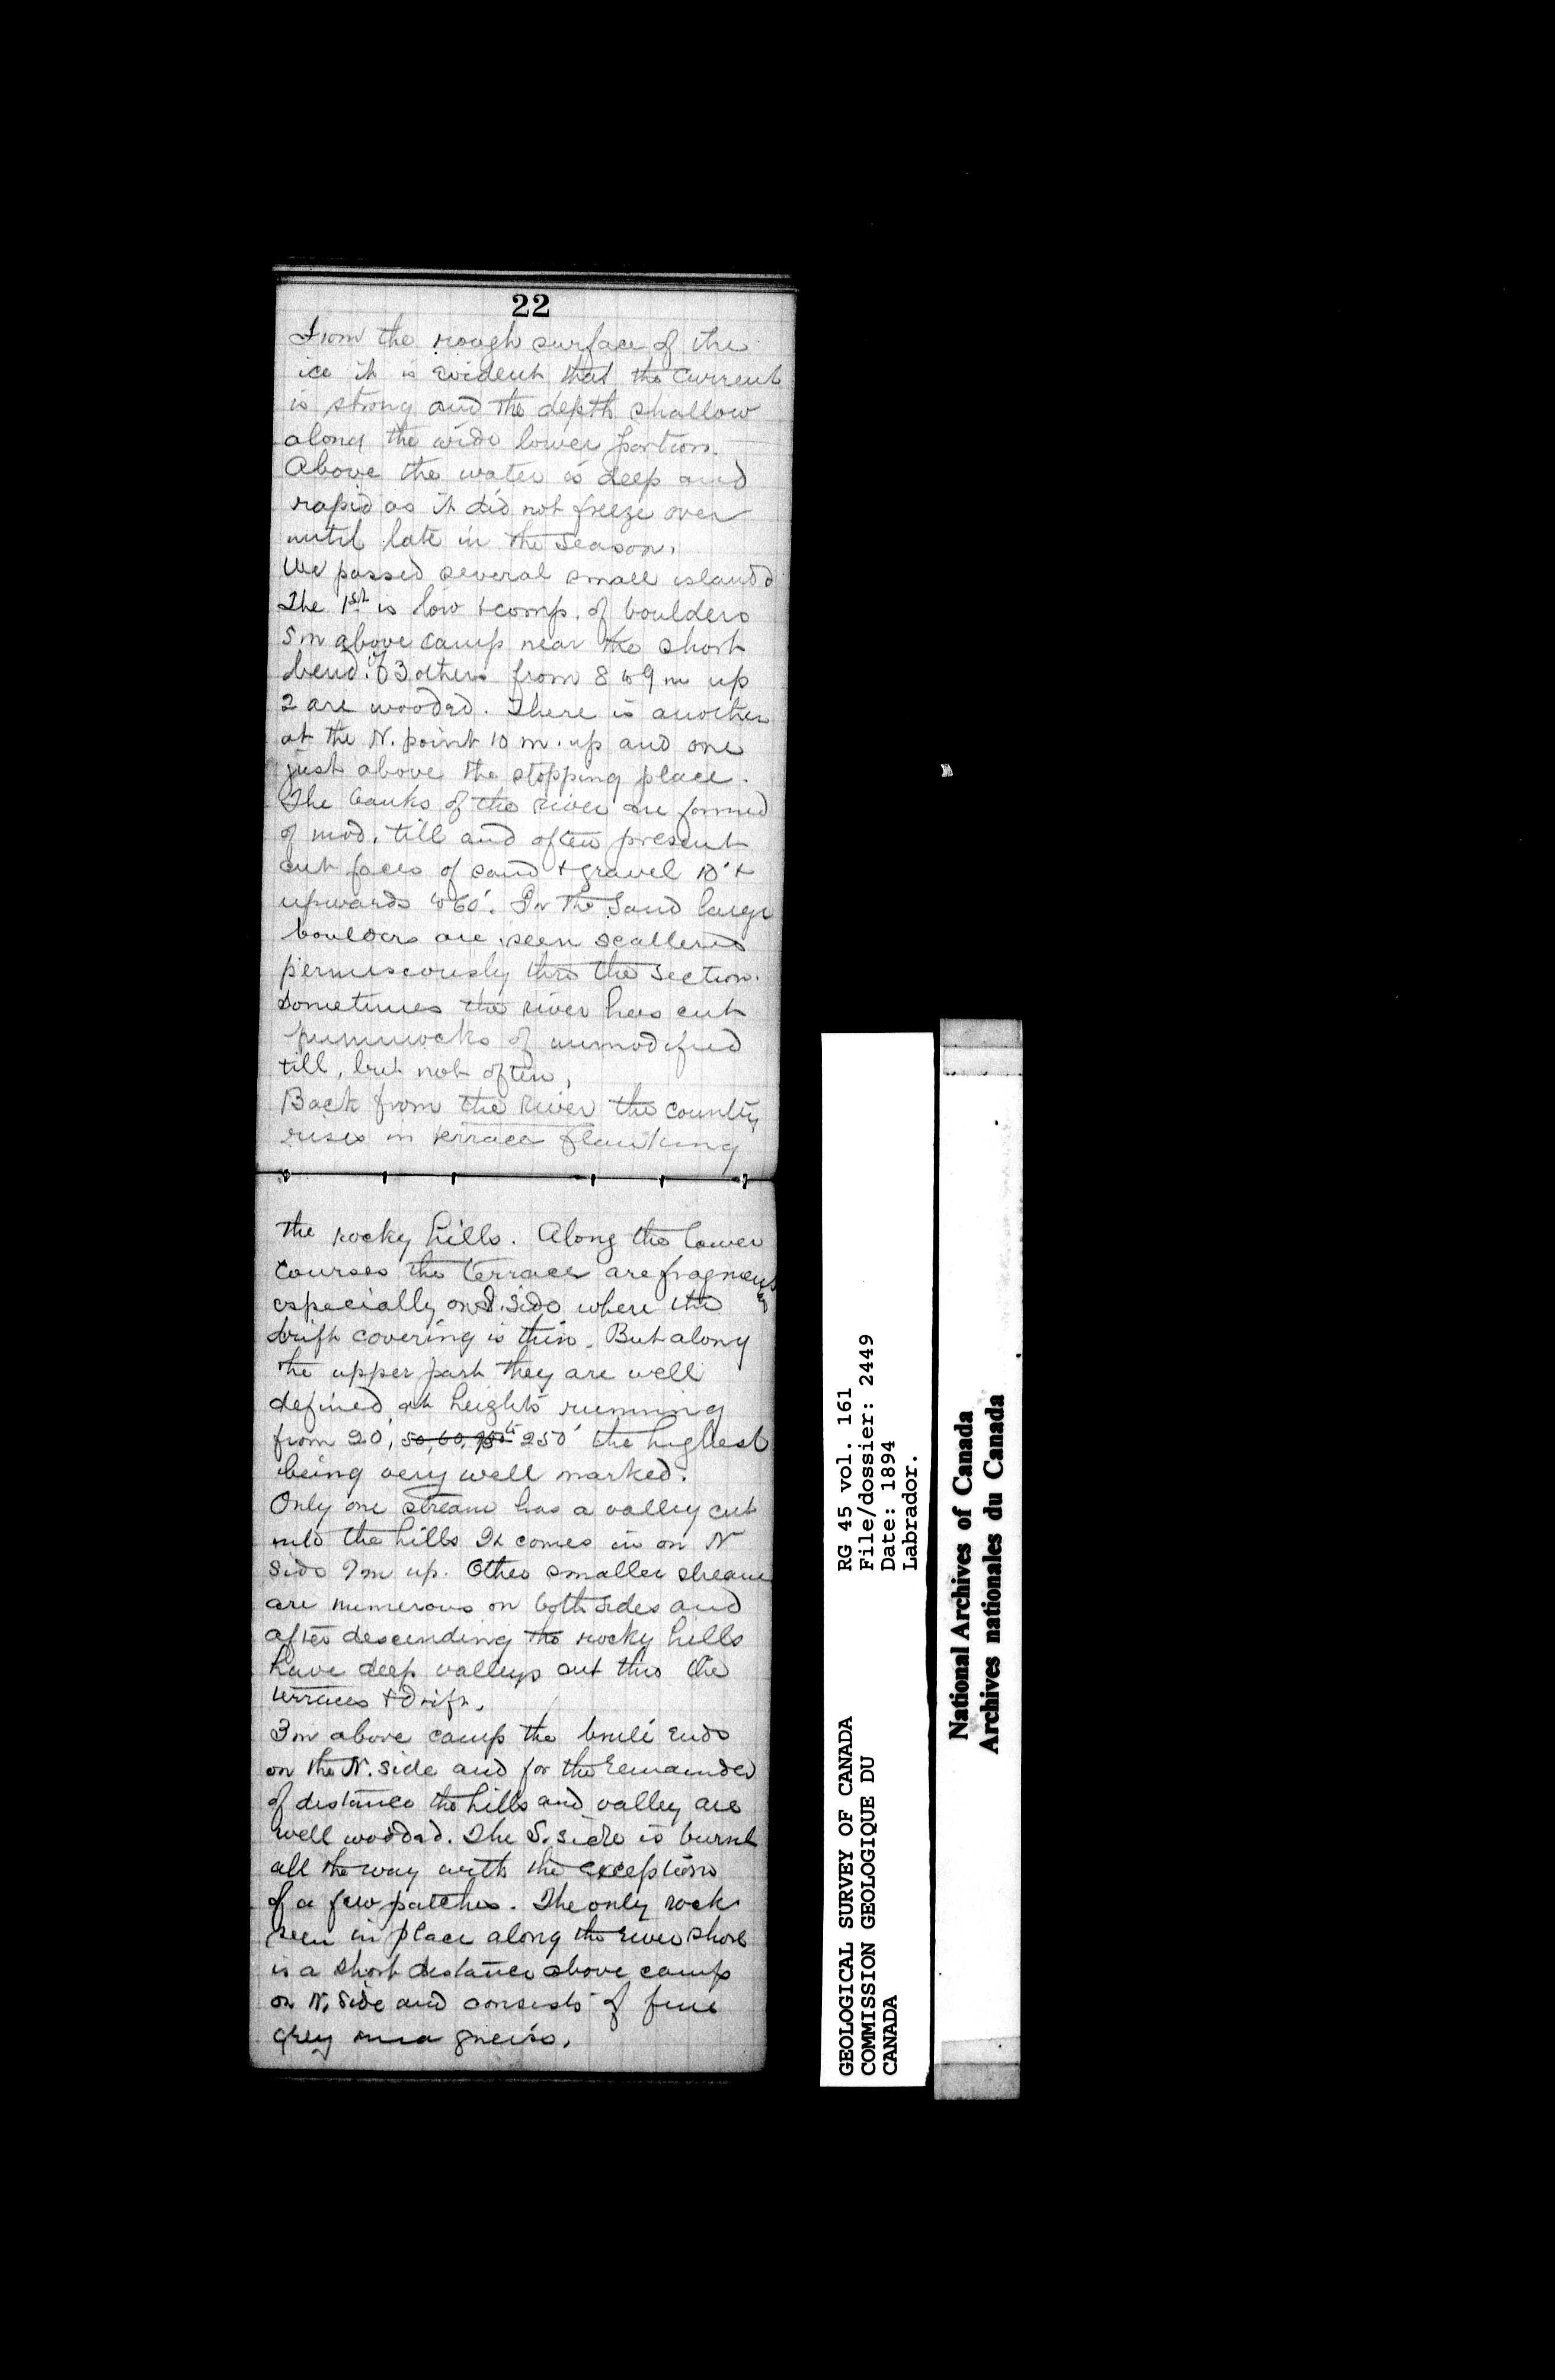 22
From the rough surface of the
ice it is evident that the current
is strong and the depth shallow
along the wide lower portion.
Above the water is deep and
rapid as it did not freeze over
until late in the season.
We passed several small islands
The 1st is low & comp. of boulders
5 m above camp near the short
bend. Of 3 others from 8 to 9 m up
2 are wooded. There is another
at the N. point 10 m. up and one
just above the stopping place.
The banks of the river are formed
of mod. till and often present
cut faces of sand & gravel 10' &
upwards to 60'. In the sand large
boulders are seen scattered
permiscously thro the section.
Sometimes the river has cut
of unmodified
till, but not often.
Back from the river the country
rises in terraces flanking
the rocky hills. Along the lower
courses the terraces are fragments
especially on S. side where the
drift covering is thin. But along
the upper part they are well
defined at heights running
from 20', 50, 60, to 250' the highest
being very well marked.
Only one stream has a valley cut
into the hills It comes in on N
side 7m up. Other smaller streams
are numerous on both sides and
after descending the rocky hills
have deep valleys cut thro the
terraces & drift.
3m above camp the brulé ends
on the N. side and for the remainder
of distance the hills and valley are
well wooded. The S. side is burnt
all the way with the exception
of a few patches. The only rock
seen in place along the river shore
is a short distance above camp
on N. side and consists of fine
grey mica gneiss.
RG 45 vol. 161
File/dossier: 2449
Date: 1894
Labrador.
GEOLOGICAL SURVEY OF CANADA
COMMISSION GEOLOGIQUE DU
CANADA
National Archives of Canada
Archives nationales du Canada